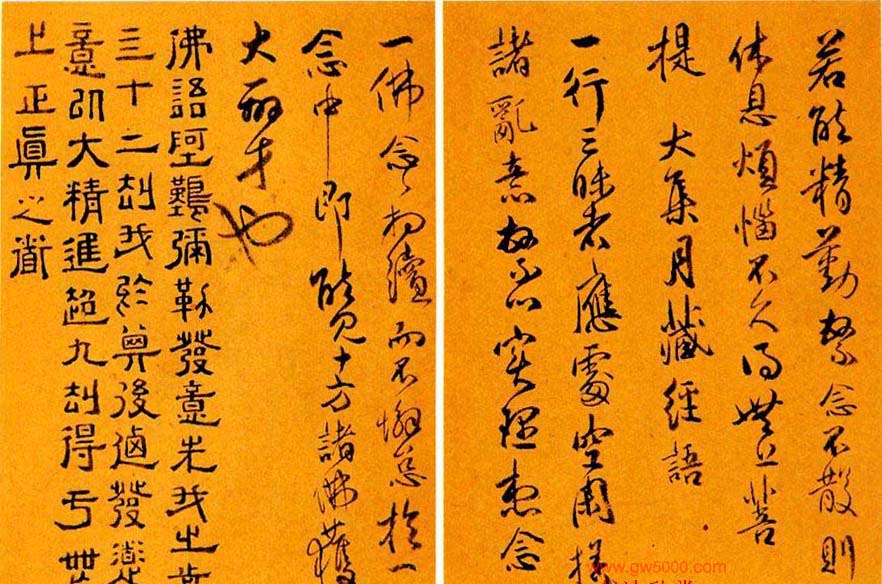 若能精勤繫念不散則
休息煩惱不久得無上菩
提 大集月藏經語
一行三昧者應處空閑捨
諸亂意繫心實理想念
一佛念々相續而不懈怠於一
念中即能見十方諸佛獲
大辯才也
佛語阿難彌勒發意先我之前
三十二劫我於其後迺發道
意以大精進超九劫得于無
上正真之道
www.gw5000.com